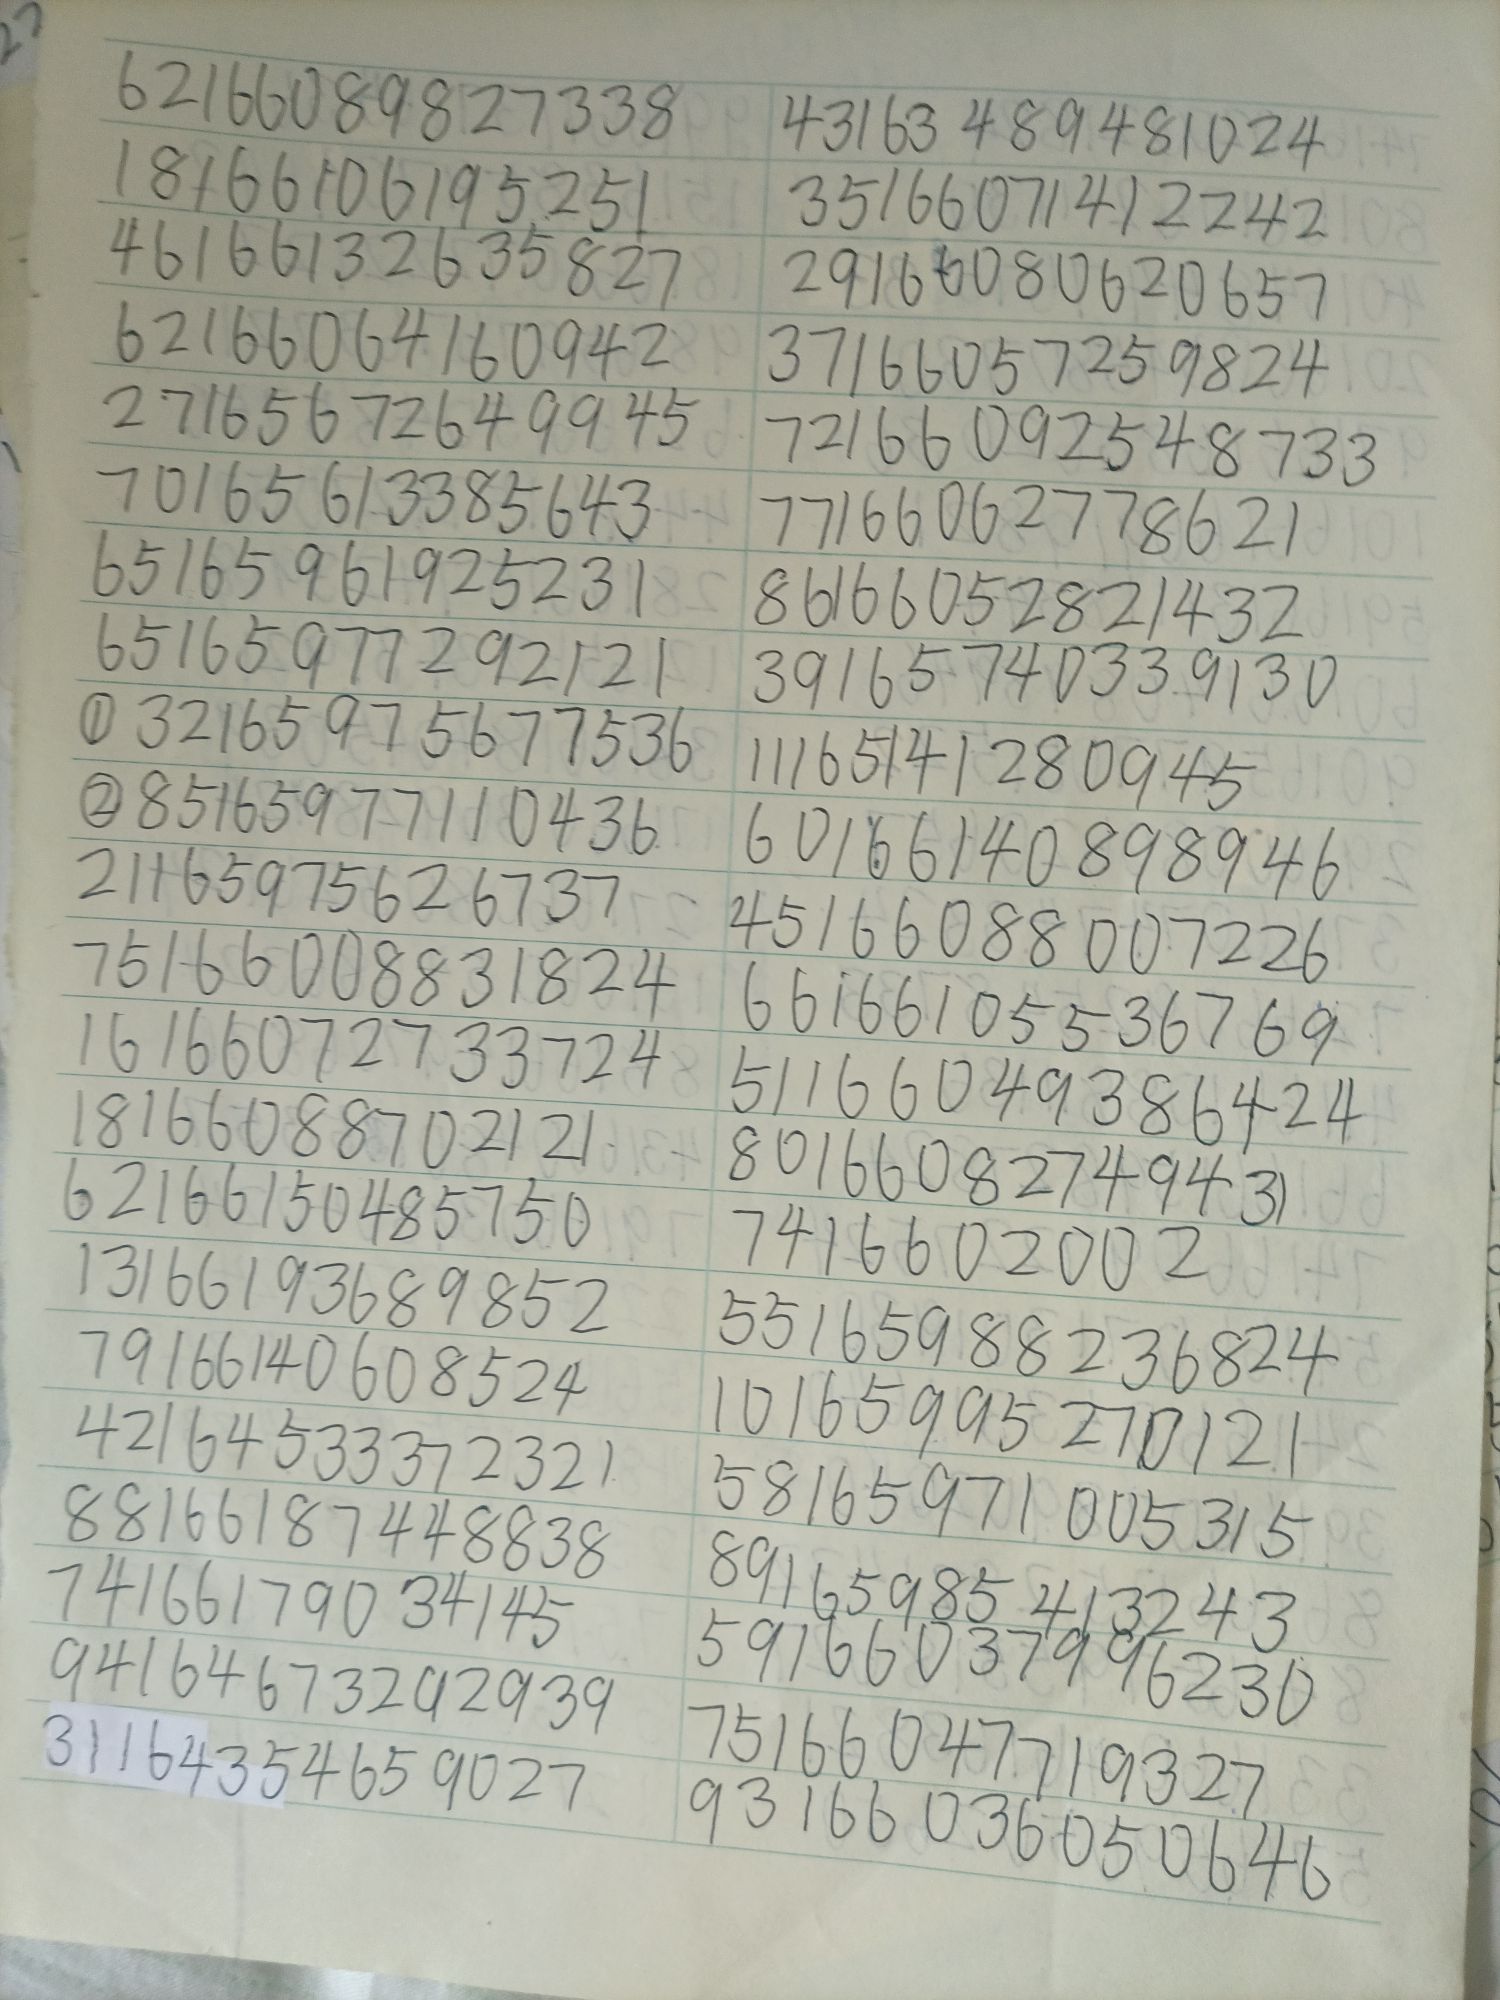 62166089827338
18166106195251
46166132635827
62166064160942
27165672649945
70165613385643
65165961925231
65165977292121
① 32165975677536
② 85165977110436
21165975626737
75166008831824
16166072733724
18166088702121
62166150485750
13166193689852
79166140608524
42164533372321
88166187448838
74166179034145
94164673292939
31164354659027
43163489481024
35166071412242
29166080620657
37166057259824
72166092548733
77166062778621
86166052821432
39165740339130
11165141280945
60166140898946
45166088007226
66166105536769
51166049386424
80166082749431
7416602002
55165988236824
10165995270121
58165971005315
89165985413243
59166037996230
75166047719327
93166036050646